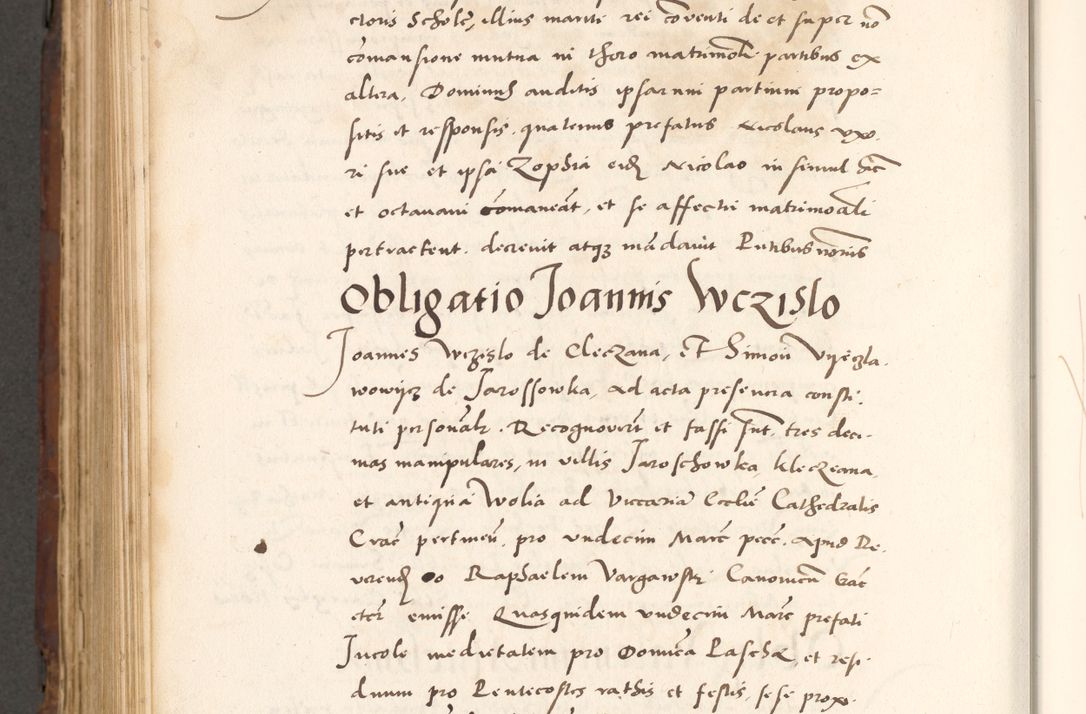 ctoris Scholę, illius mariti rei cōventi de et super nō
cōmansione mutua in thoro matrimoñli partibus ex
altera, Dominus auditis ipsarum partium propo=
sitis et responsis, quatenus prefatus Nicolaus vxo.
ri sue et ipsa Zophia eidē Nicolao in simul
et octavam cōmaneāt, et se affectu matrimoāli
pertractent. decrevit atqz mādavit
Obligatio Joannis Wczislo
Joannes Wczislo de Cleczana, et Simon
de Jarossowka, ad acta presencia consti
tuti personalr. Recognoverūt et fassi sunt, tres deci-
mas manipulares, in villis Jaroschowka, kleczana,
et antiqua Wolia ad viccariā Ecclie Cathedralis
Crac pertineñ, pro vndecim Marc pecc. apud Re-
verend do Raphaelem Vargawski Canonicū
emisse Quasquidem vndecim Marc prefati
Incole medietatem pro Domīca Pascha, et resi-
duum pro Pentecostes rathis et festis, sese prox.